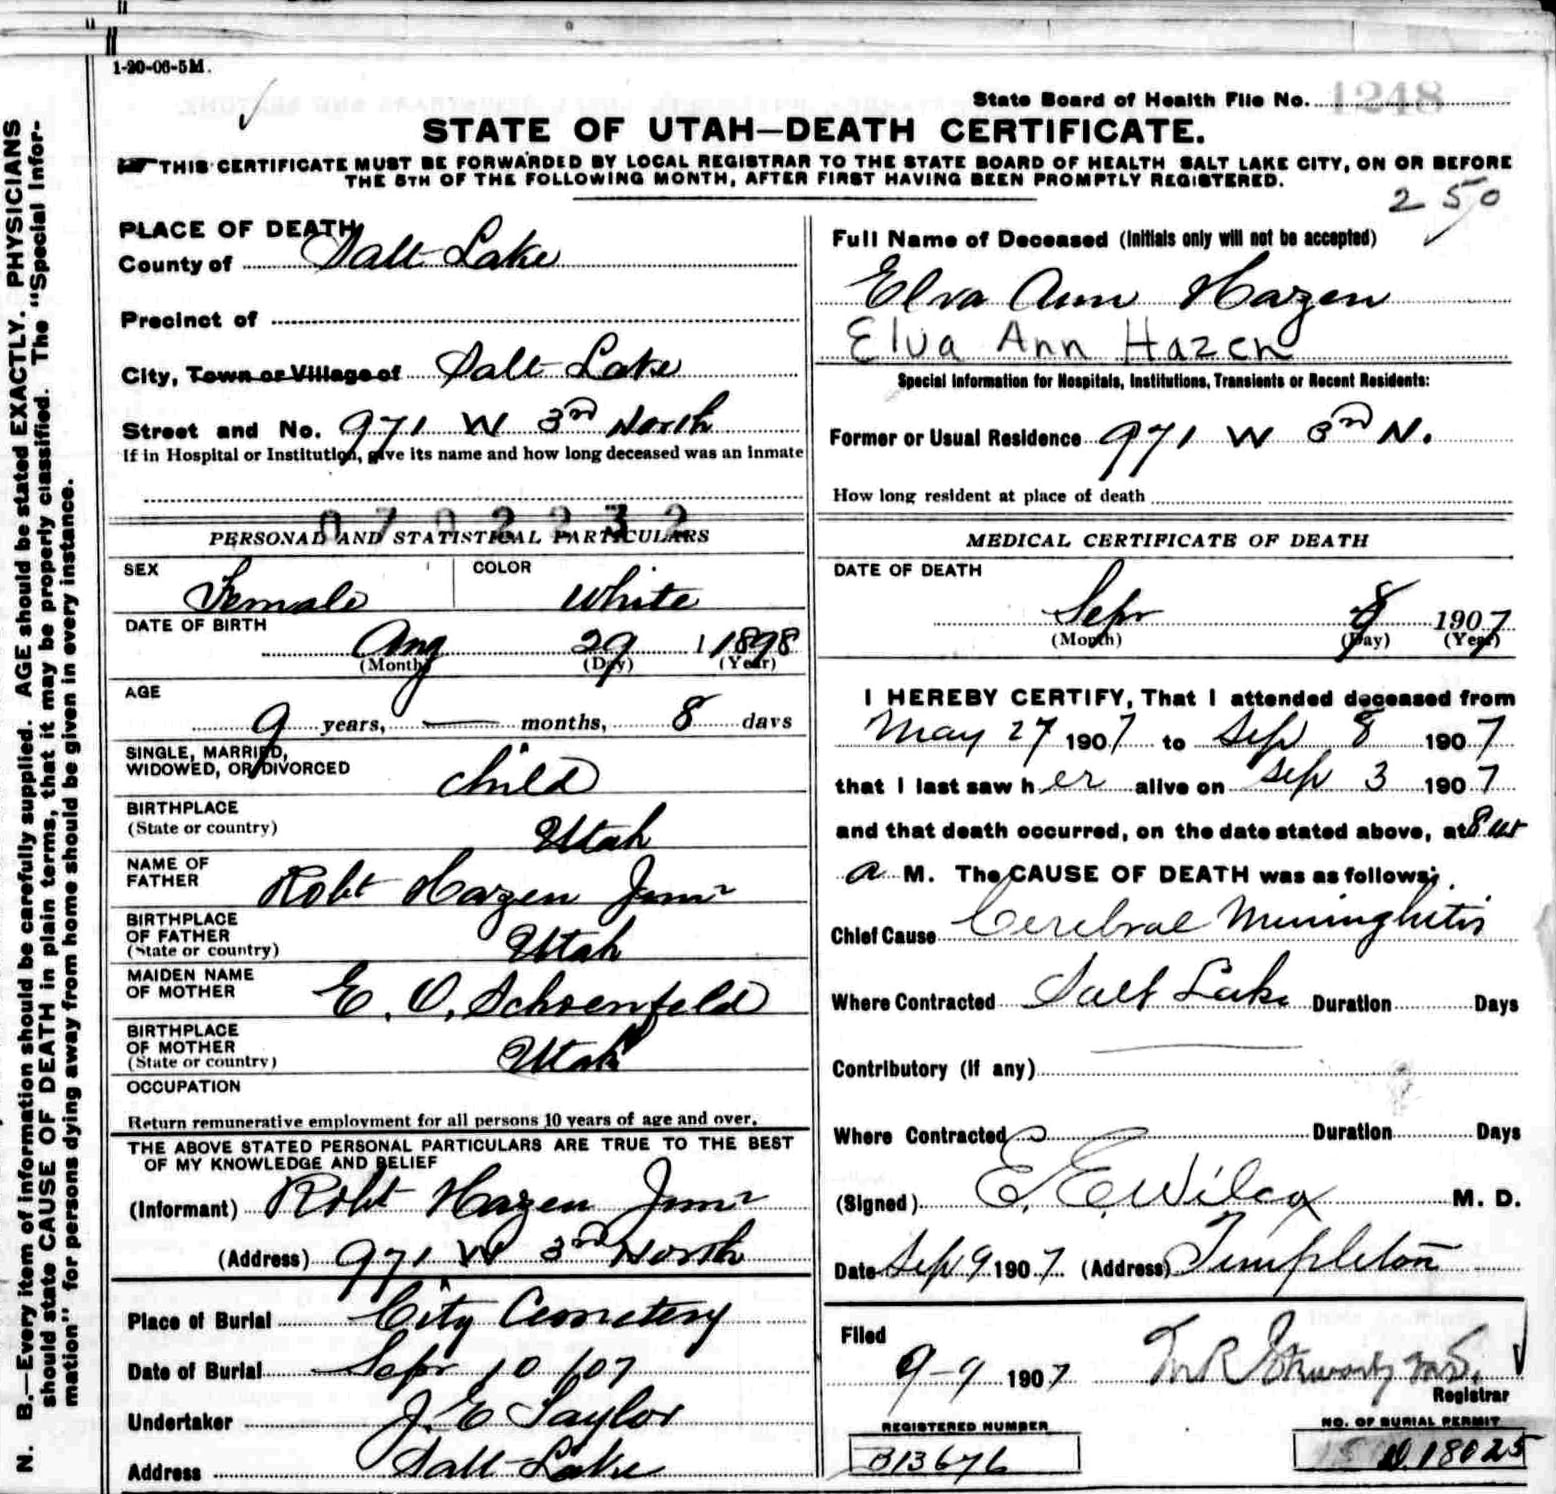 1-20-06-5M.
State Board of Health File No. 1248
STATE OF UTAH—DEATH CERTIFICATE.
THIS CERTIFICATE MUST BE FORWARDED BY LOCAL REGISTRAR TO THE STATE BOARD OF HEALTH SALT LAKE CITY, ON OR BEFORE
THE 5TH OF THE FOLLOWING MONTH, AFTER FIRST HAVING BEEN PROMPTLY REGISTERED.
250
N. B.—Every item of information should be carefully supplied. AGE should be stated EXACTLY. PHYSICIANS
should state CAUSE OF DEATH in plain terms, that it may be properly classified. The "Special Infor-
mation" for persons dying away from home should be given in every instance.
PLACE OF DEATH
County of Salt Lake
Precinct of
City, Town or Village of Salt Lake
Street and No. 971 W 3rd North
If in Hospital or Institution, give its name and how long deceased was an inmate
0702232
PERSONAL AND STATISTICAL PARTICULARS
SEX Female COLOR White
DATE OF BIRTH
Aug 29 1898
(Month) (Day) (Year)
AGE
9 years, — months, 8 days
SINGLE, MARRIED,
WIDOWED, OR DIVORCED child
BIRTHPLACE
(State or country) Utah
NAME OF
FATHER Robt Hazen Junr
BIRTHPLACE
OF FATHER
(State or country) Utah
MAIDEN NAME
OF MOTHER E. O. Schoenfeld
BIRTHPLACE
OF MOTHER
(State or country) Utah
OCCUPATION
Return remunerative employment for all persons 10 years of age and over.
THE ABOVE STATED PERSONAL PARTICULARS ARE TRUE TO THE BEST
OF MY KNOWLEDGE AND BELIEF
(Informant) Robt Hazen Junr
(Address) 971 W 3rd North
Place of Burial City Cemetery
Date of Burial Sepr 10 /07
Undertaker J. E Taylor
Address Salt Lake
Full Name of Deceased (Initials only will not be accepted)
Elva Ann Hazen
Elva Ann Hazen
Special Information for Hospitals, Institutions, Transients or Recent Residents:
Former or Usual Residence 971 W 3rd N.
How long resident at place of death
MEDICAL CERTIFICATE OF DEATH
DATE OF DEATH
Sepr 8 1907
(Month) (Day) (Year)
I HEREBY CERTIFY, That I attended deceased from
May 27 1907 to Sep 8 1907
that I last saw her alive on Sep 3 1907
and that death occurred, on the date stated above, at 8
a M. The CAUSE OF DEATH was as follows:
Chief Cause Cerebral Meninghitis
Where Contracted Salt Lake Duration Days
Contributory (if any)
Where Contracted Duration Days
(Signed) E. E. Wilcox M. D.
Date Sep 9 1907 (Address) Templeton
Filed
9-9 1907 M.D.
Registrar
REGISTERED NUMBER
B13676
NO. OF BURIAL PERMIT
18025